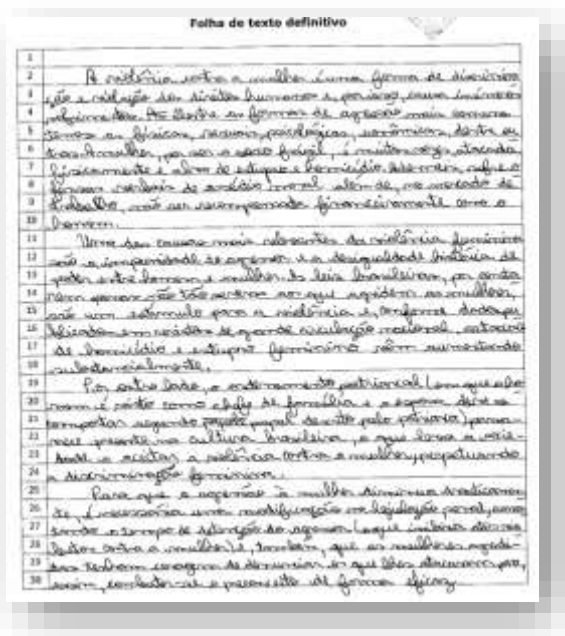 Folha de texto definitivo
1
2 A violência contra a mulher é uma forma de discrimina
3 ção e violação dos direitos humanos e, por isso, causa inúmeros
4 sofrimentos. Dentre as formas de agressão mais comuns
5 temos as físicas, sexuais, psicológicas, econômicas, dentre ou
6 tras. A mulher, por ser o sexo frágil, é muitas vezes atacada
7 fisicamente e alvo de estupro e homicídio. Ademais, sofre
8 verbais de assédio moral além de, no mercado de
9 trabalho, não ser recompensada financeiramente como o
10 homem.
11 Uma das causas mais relevantes da violência feminina
12 são a impunidade do agressor e a desigualdade histórica de
13 poder entre homem e mulher. As leis brasileiras, por
14 penas não tão severas aos que agridem as mulheres,
15 são um estímulo para a violência e, conforme dados pu
16 blicados em de grande circulação nacional,
17 de homicídio e estupro feminino vêm aumentando
18 substancialmente.
19 Por outro lado, o ordenamento patriarcal (em que o ho
20 mem é visto como chefe de família e a esposa deve se
21 comportar segundo papel descrito pelo patriarca) perma
22 nece presente na cultura brasileira, o que leva a socie-
23 dade a aceitar a violência contra a mulher, perpetuando
24 a discriminação feminina.
25 Para que a agressão à mulher diminua drasticamen
26 te, é necessária uma modificação na legislação penal, aumen
27 tando o tempo de detenção do agressor (o que inibiria
28 contra a mulher) e, também, que as mulheres agredi-
29 das tenham coragem de denunciar os que lhes atacaram para,
30 assim, combater-se o preconceito de forma eficaz